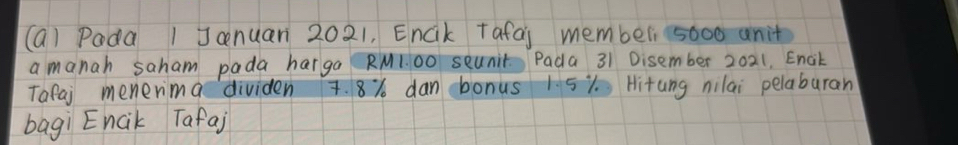 (a) Pada 1 Januari 2021, Encik Tafaj membeli 5000 unit
amanah saham pada harga RM1.00 seunit. Pada 31 Disember 2021, Encik
Tafaj menerima dividen 7.8% dan bonus 1.5%. Hitung nilai pelaburan
bagi Encik Tafaj